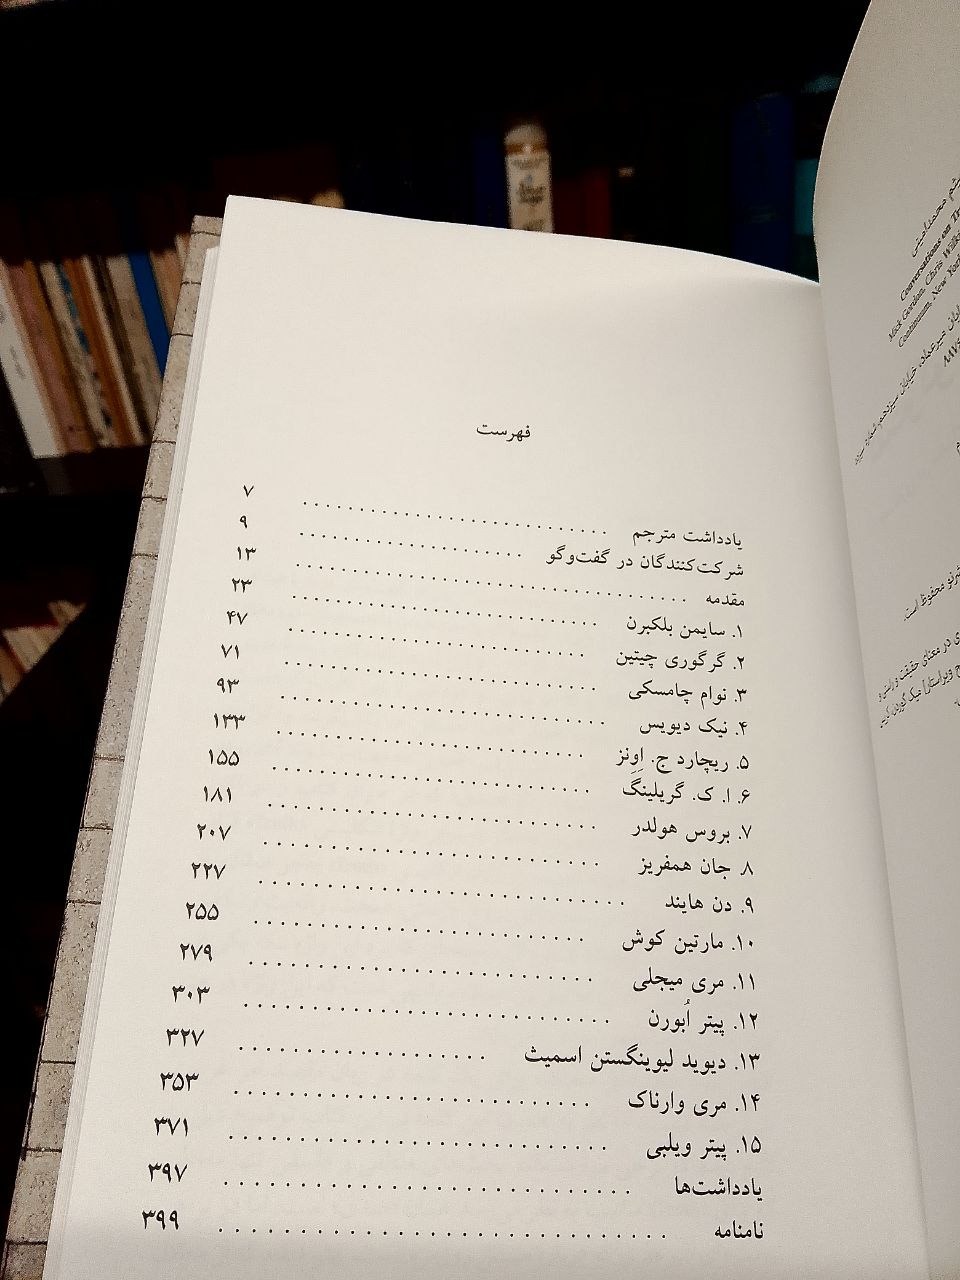 فهرست
یادداشت مترجم ۷
شرکت‌کنندگان در گفت‌وگو ۹
مقدمه ۱۳
۱. سایمن بلکبرن ۲۳
۲. گرگوری چیتین ۴۷
۳. نوام چامسکی ۷۱
۴. نیک دیویس ۹۳
۵. ریچارد ج. اِوِنز ۱۳۳
۶. ا. ک. گریلینگ ۱۵۵
۷. بروس هولدر ۱۸۱
۸. جان همفریز ۲۰۷
۹. دن هایند ۲۲۷
۱۰. مارتین کوش ۲۵۵
۱۱. مری میجلی ۲۷۹
۱۲. پیتر اُبورن ۳۰۳
۱۳. دیوید لیوینگستن اسمیث ۳۲۷
۱۴. مری وارناک ۳۵۳
۱۵. پیتر ویلبی ۳۷۱
یادداشت‌ها ۳۹۷
نامنامه ۳۹۹
Conversations on
Mick Gordon, Chris
Continuum, New York
خیابان سیزدهم، شماره سیزده
محفوظ است.
در معنای حقیقت و راستی و